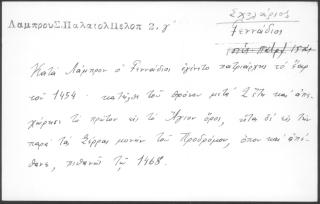 Λάμπρου Σ. Παλαιολ Πελοπ 2. γ'
Σχολάριος
Γεννάδιος
Κατὰ Λάμπρον ὁ Γεννάδιος ἐγένετο πατριάρχης τὸ ἔαρ
τοῦ 1454 · κατῆλθε τοῦ θρόνου μετὰ 2 ἔτη καὶ ἀπε-
χώρησε τὸ πρῶτον εἰς τὸ Ἅγιον ὄρος, εἶτα δὲ εἰς τὴν
παρὰ τὰς Σέρρας μονὴν τοῦ Προδρόμου, ὅπου καὶ ἀπέ-
θανε, πιθανῶς τῷ 1468.